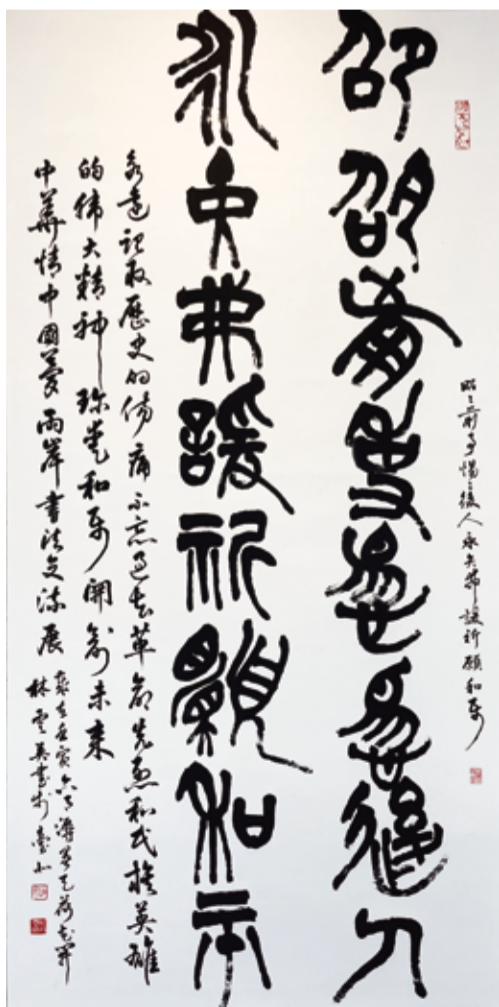 昭々前事惕々後人永矢弗諼祈願和平
昭昭前事惕惕後人
永矢弗諼祈願和平
永遠記取歷史的傷痛不忘過去革命先烈和民族英雄
的偉大精神珍愛和平開創未來
中華情中國夢兩岸書法交流展
歲在壬寅六月
林雲英書於臺北